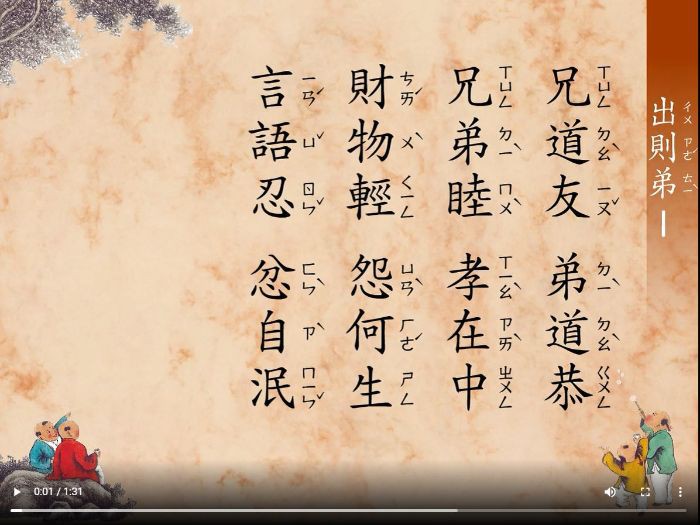 出則弟 |
ㄔㄨ ㄗㄜˊ ㄊㄧˋ
兄道友 弟道恭
ㄒㄩㄥ ㄉㄠˋ ㄧㄡˇ ㄉㄧˋ ㄉㄠˋ ㄍㄨㄥ
兄弟睦 孝在中
ㄒㄩㄥ ㄉㄧˋ ㄇㄨˋ ㄒㄧㄠˋ ㄗㄞˋ ㄓㄨㄥ
財物輕 怨何生
ㄘㄞˊ ㄨˋ ㄑㄧㄥ ㄩㄢˋ ㄏㄜˊ ㄕㄥ
言語忍 忿自泯
ㄧㄢˊ ㄩˇ ㄖㄣˇ ㄈㄣˋ ㄗˋ ㄇㄧㄣˇ
0:01 / 1:31